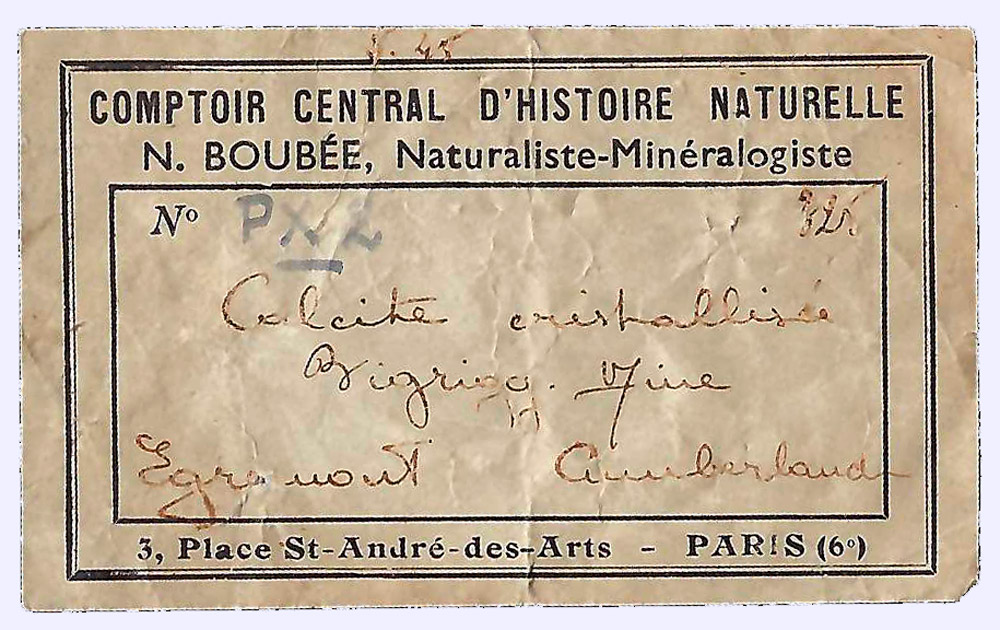 COMPTOIR CENTRAL D'HISTOIRE NATURELLE
N. BOUBÉE, Naturaliste-Minéralogiste
Nº PX2 325
Calcite cristallisée
Bigrigg. Mine
Egremont Cumberland
3, Place St-André-des-Arts - PARIS (6º)